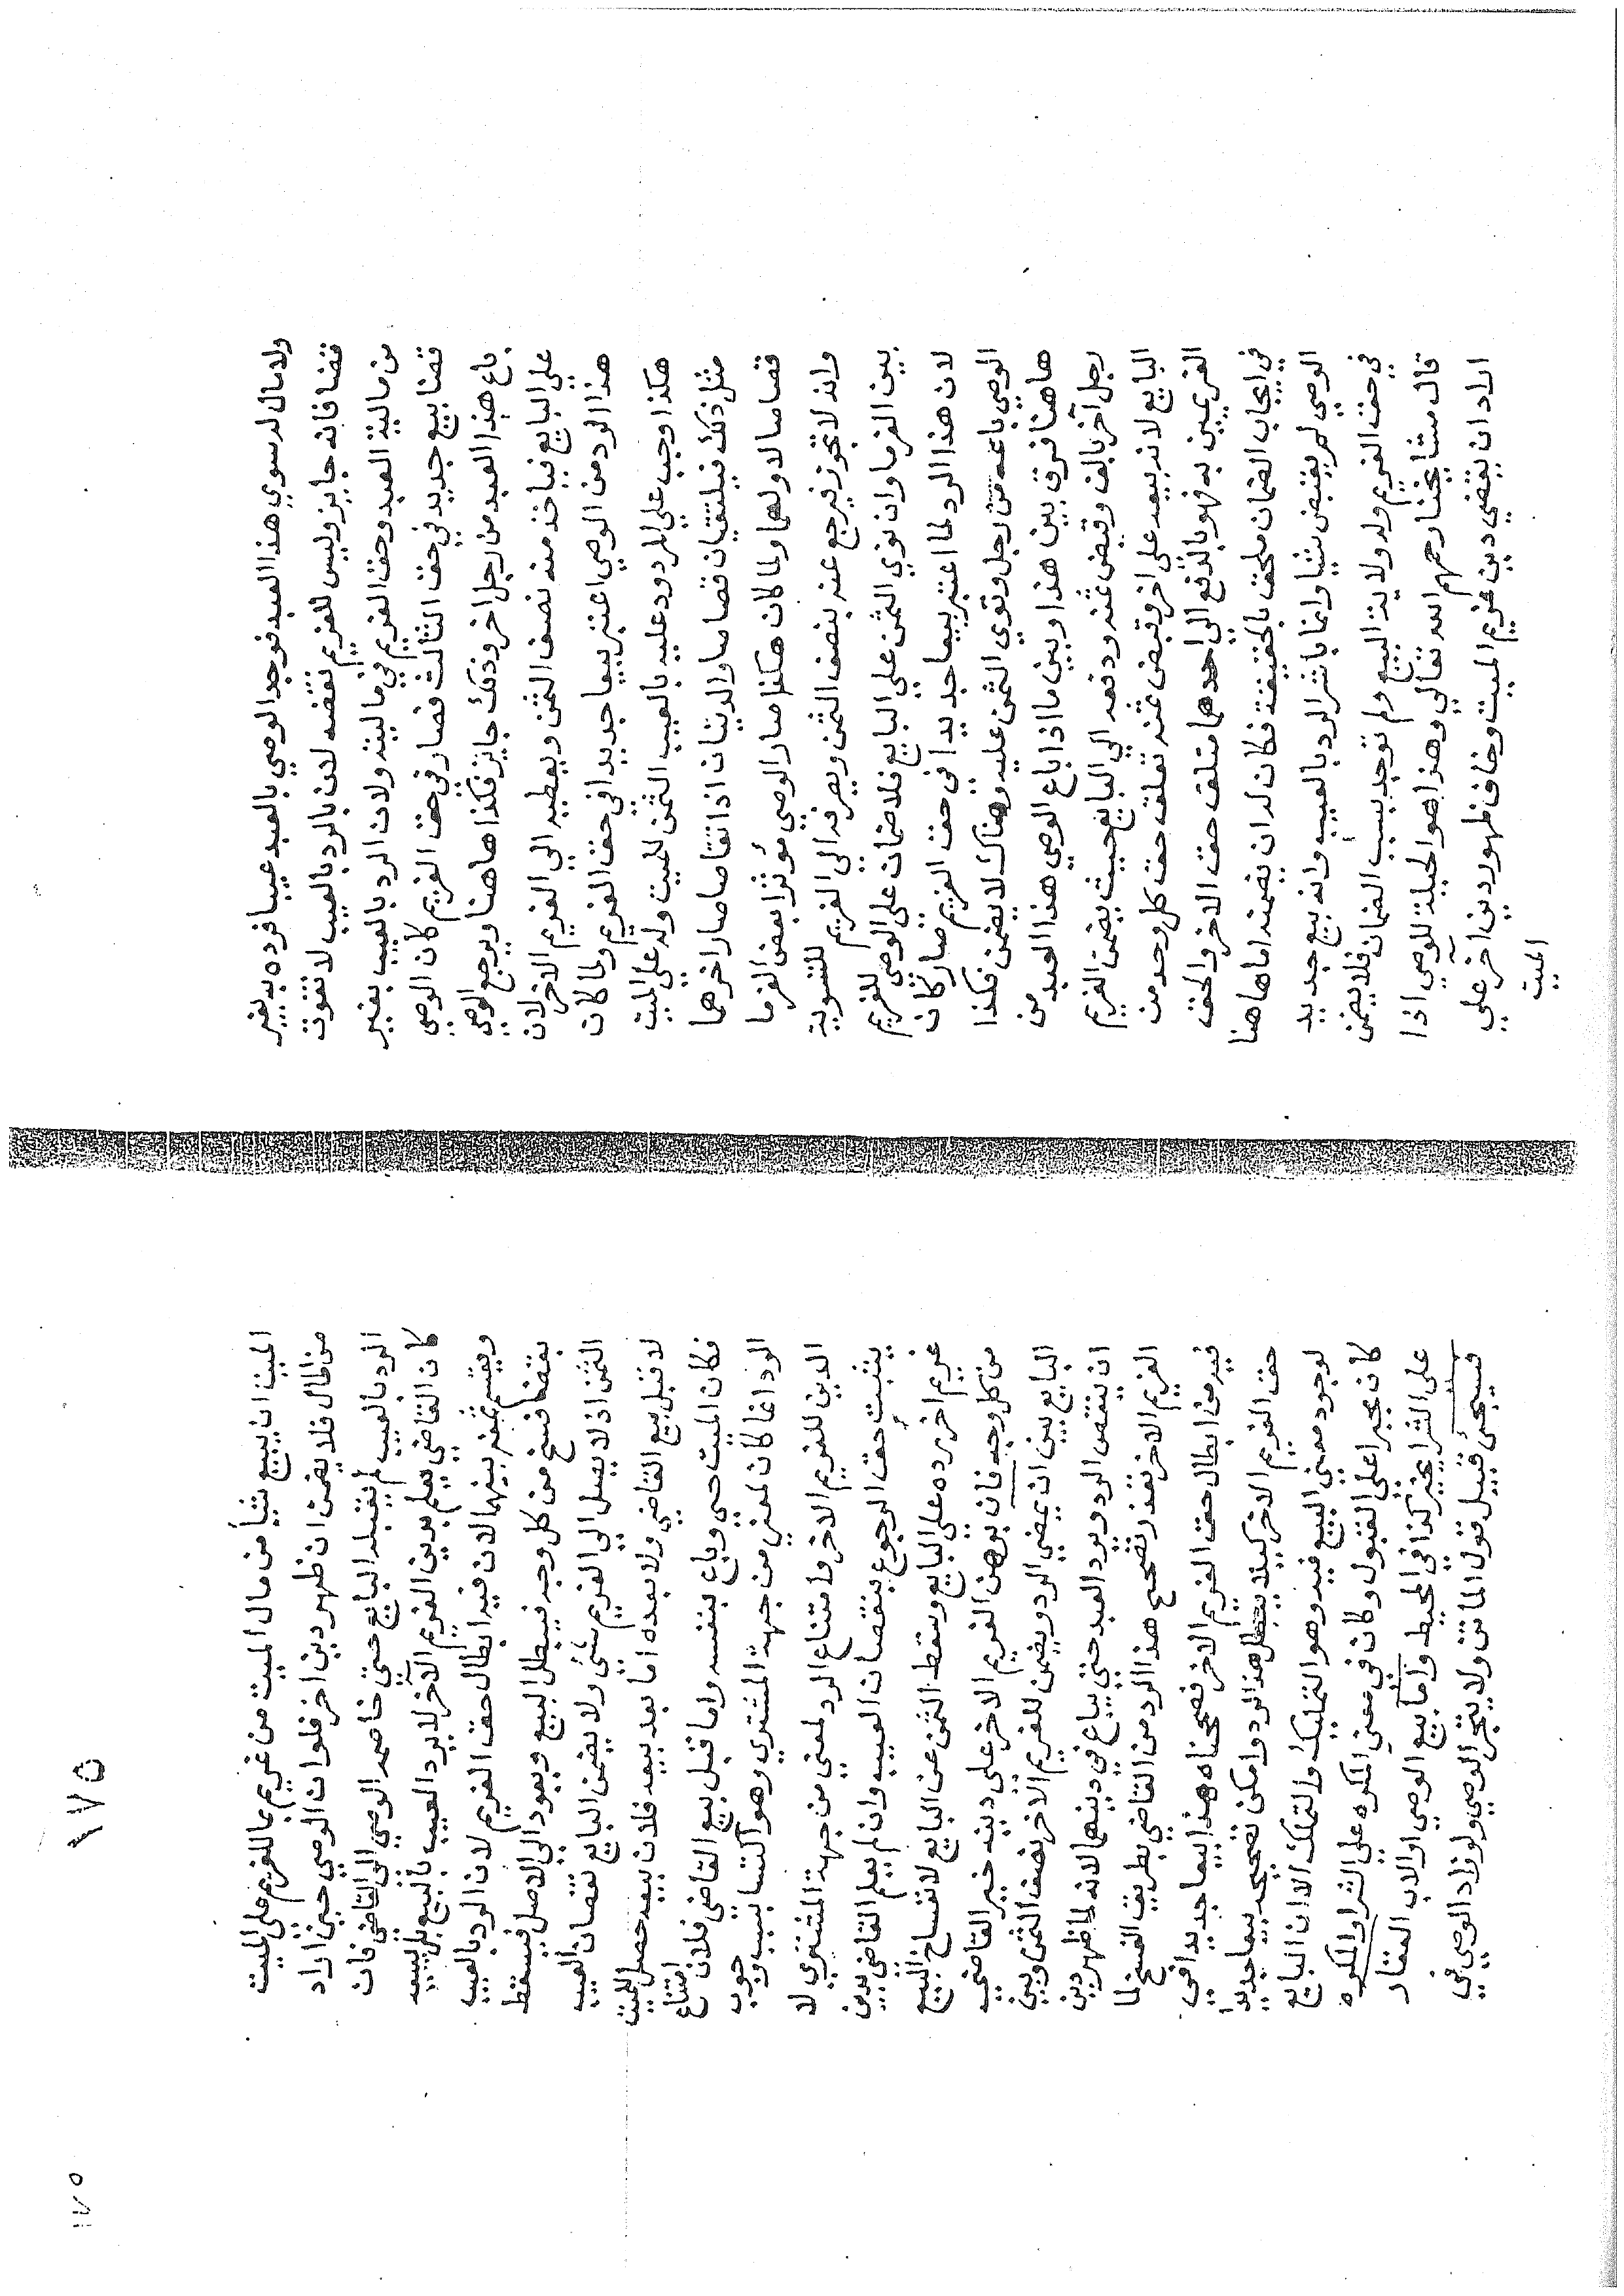 ولا مال له سوي هذا العبد فوجد الوصي بالعبد عيبا فرده به بغير
قضا فانه جايز وليس للغريم نقضه لان بالرد بالعيب لا تفوت
من مالية العبد وحق الغريم في ماليته ولان الرد بالعيب بغير
قضا بيع جديد في حق الثالث فصار في حق الغريم كان الوصي
باع هذا العبد من رجل اخر وذلك جايز فكذا هاهنا ويرجع الوصي
علي البايع فياخذ منه نصف الثمن ويعطيه الي الغريم الاخر لان
هذا الرد من الوصي اعتبر بيعا جديدا في حق الغريم ولما كان
هكذا وجب علي المردود عليه بالعيب الثمن للميت وله علي الميت
مثل ذلك فيلتقيان قصاصا والدينان اذا تقاصا صار اخرهما
قضا لاولهما ولما كان هكذا صار الوصي مؤثرا بعض الغرما
وانه لا تجوز فيرجع عنه بنصف الثمن ويصرفه الي الغريم للتسوية
بين الغرما وان نوي الثمن علي البايع فلا ضمان علي الوصي للغريم
لان هذا الرد لما اعتبر بيعا جديدا في حق الغريم صار كان
الوصي باعه من رجل ونوي الثمن عليه وهناك لا يضمن فكذا
هاهنا فرق بين هذا وبين ما اذا باع الوصي هذا العبد من
رجل آخر بالف وقبض ثمنه ودفعه الي البايع حيث يضمن الغريم
البايع لانه بيعه علي اخر وقبض ثمنه تعلق حق كل وحد من
الغريمين به فهو بالدفع الي احدهما متلف حق الاخر والحق
في ايجاب الضمان ملحق بالحقيقة فكان له ان يضمنه اما هاهنا
الوصي لم يقبض شيا وانما باشر الرد بالعيب وانه بيع جديد
في حق الغريم وله ولاية البيع ولم توجد سبب الضمان فلا يضمن
قال مشايخنا رحمهم الله تعالي وهذا هو الحيلة للوصي اذا
اراد ان يقضي دين غريم الميت وخاف ظهور دين اخر علي
الميت
١٧٥
الميت ان يبيع شيأ من مال الميت من غريم بما للغريم علي الميت
من المال فلا يضمن ان ظهر دين اخر فلو ان الوصي حين اراد
الرد بالعيب لم يقبله البايع حتي خاصمه الوصي الي القاضي فان
كان القاضي يعلم بدين الغريم الآخر لا يرد العبد بالعيب بل يبيعه
ويقسم ثمنه بينهما لان فيه ابطال حق الغريم لان الرد بالعيب
بقضا فسخ من كل وجه فيبطل البيع ويعود الي الاصل فيسقط
الثمن اذ لا يصل الي الغريم شئ ولا يضمن البايع نقصان العيب
لا قبل بيع القاضي ولا بعده اما بعد بيعه فلان بيعه حصل للميت
فكان الميت حي وباع بنفسه واما قبل بيع القاضي فلان امتناع
الرد انما كان لمعني من جهة المشتري وهو اكتسابه سبب وجوب
الدين للغريم الاخر وامتناع الرد لمعني من جهة المشتري لا
يثبت حق الرجوع بنقصان العيب وان لم يعلم القاضي بدين
غريم اخر رده علي البايع وسقط الثمن عن البايع لانفساخ البيع
من كل وجه فان برهن الغريم الاخر علي دينه خير القاضي
البايع بين ان يمضي الرد ويضمن للغريم الاخر نصف الثمن وبين
ان ينقض الرد ويرد العبد حتي يباع في دينهما لانه لما ظهر دين
الغريم الاخر تعذر تصحيح هذا الرد من القاضي بطريق الفسخ لما
فيه من ابطال حق الغريم الاخر فصححناه بيعا جديدا في
حق الغريم الاخر كيلا يبطل هذا الرد وامكن تصحيحه بيعا جديدا
لوجود معني البيع فيه وهو التمليك والتملك الا ان البايع
كان مجبرا علي القبول وكان في معني المكره علي الشرا والمكره
علي الشرا يخير كذا في المحيط واما بيع الوصي والاب العقار
فسيجئ قبيل قول الماتن ولا يتجر الوصي ولو زاد الوصي في
١٧٥